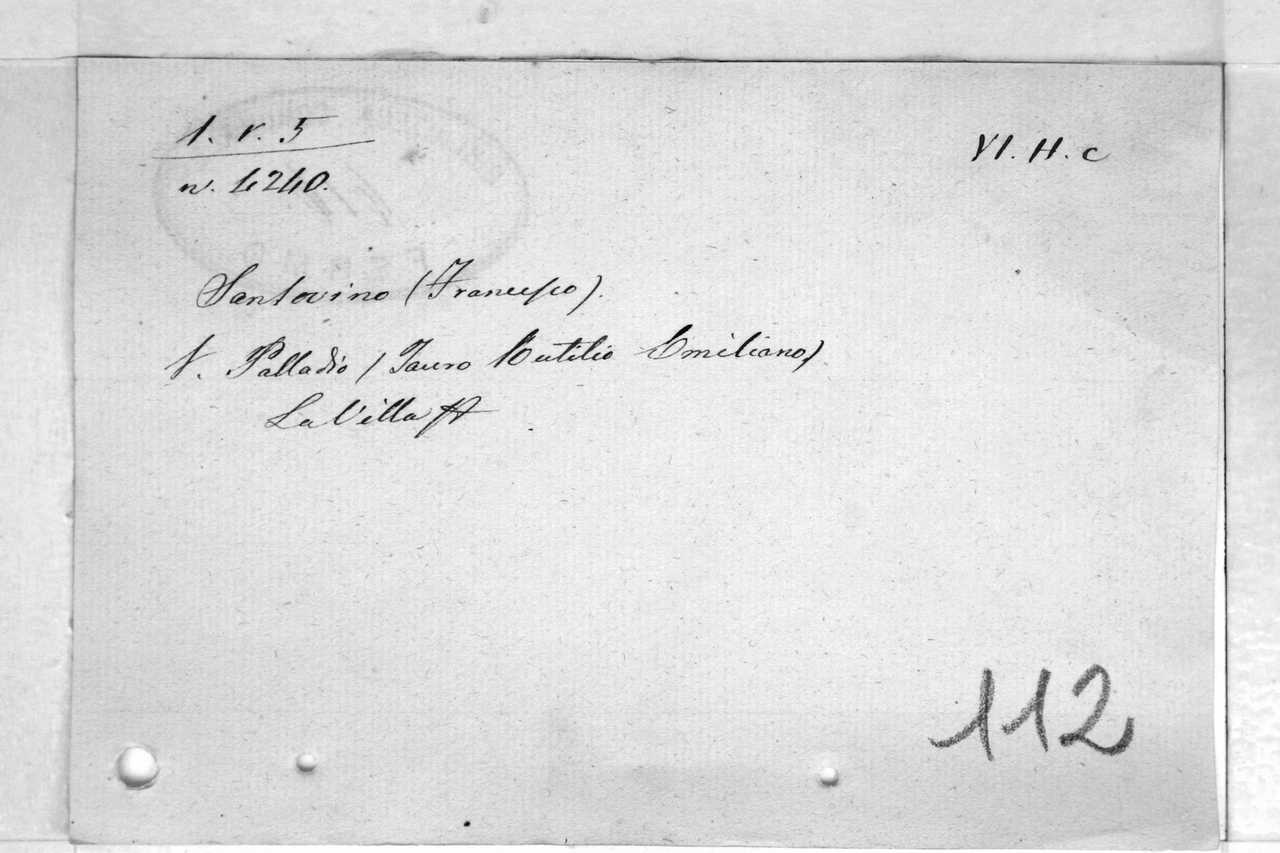 1. V. 5
n. 4240.
VI. H. c
Santovino (Francesco).
V. Palladio (Tauro Rutilio Emiliano)
La Villa
112